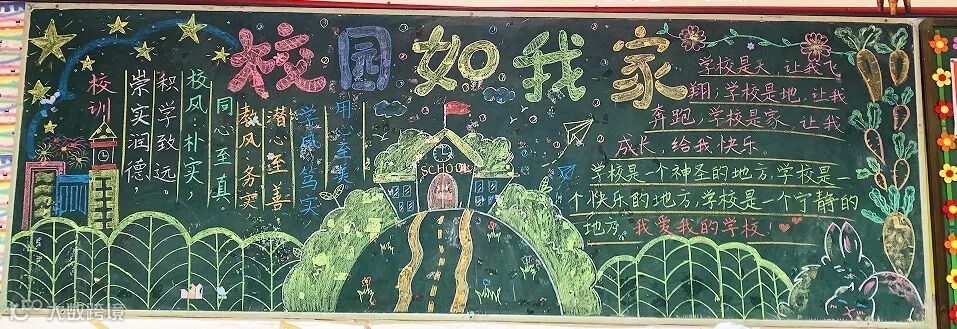 校园如我家
校训
崇实润德,
积学致远。
校风·朴实
同心至真
教风·务实
潜心至善,
学风·笃实
用心至美
SCHOOL
学校是天,让我飞
翔;学校是地,让我
奔跑,学校是家,让我
成长,给我快乐。
学校是一个神圣的地方,学校是一
个快乐的地方,学校是一个宁静的
地方。我爱我的学校!
大数跨境